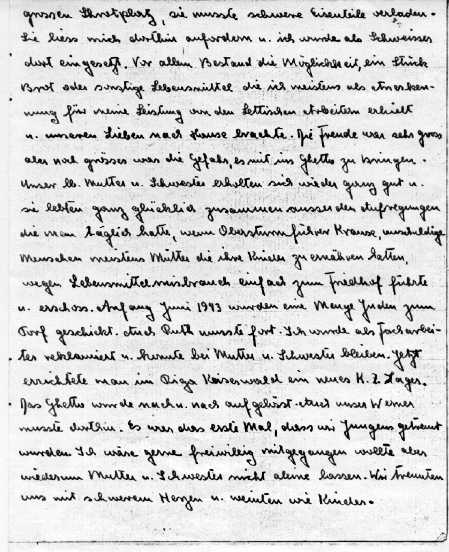 grossen Schrotplatz, sie musste schwere Eisenteile verladen.
Sie liess mich dorthin anfordern u. ich wurde als Schweisser
dort eingesetzt. Vor allem Bestand die Möglichkeit, ein Stück
Brot oder sonstige Lebensmittel die ich meistens als Anerken-
nung für meine Leistung von den Lettischen Arbeitern erhielt
u. unseren Lieben nach Hause brachte. Die Freude war sehr gross
aber noch grösser war die Gefahr, es mit ins Ghetto zu bringen.
Unser lb. Mutter u. Schwester erholten sich wieder ganz gut u.
sie lebten ganz glücklich zusammen ausser den Aufregungen
die man täglich hatte, wenn Obersturmführer Krause, unschuldige
Menschen meistens Mütter die ihre Kinder zu ernähren hatten,
wegen Lebensmittelmissbrauch einfach zum Friedhof führte
u. erschoss. Anfang Juni 1943 wurden eine Menge Juden zum
Torf geschickt. Auch Ruth musste fort. Ich wurde als Facharbei-
ter reklamiert u. konnte bei Mutter u. Schwester bleiben. Jetzt
errichtete man im Riga Kaiserwald ein neues K.Z. Lager.
Das Ghetto wurde nach u. nach aufgelöst. Auch unser Werner
musste dorthin. Es war das erste Mal, dass wir Jungens getrennt
wurden. Ich wäre gerne freiwillig mitgegangen wollte aber
wiederum Mutter u. Schwester nicht alleine lassen. Wir trennten
uns mit schwerem Herzen u. weinten wie Kinder.